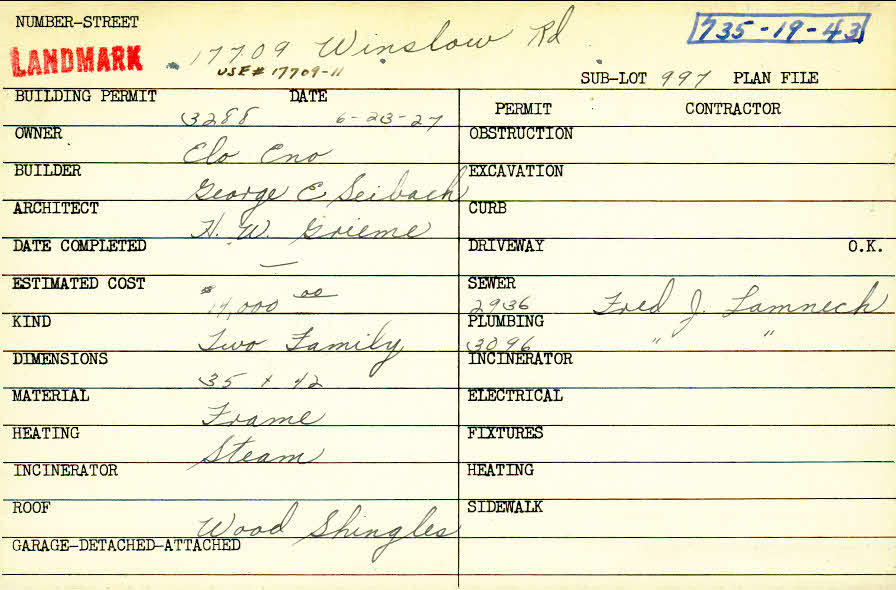 NUMBER-STREET
735-19-43
LANDMARK 17709 Winslow Rd
USE# 17709-11
SUB-LOT 997 PLAN FILE
BUILDING PERMIT DATE
3288 6-23-27
OWNER
Clo Eno
BUILDER
George E Seibach
ARCHITECT
H. W. Grieme
DATE COMPLETED
—
ESTIMATED COST
$14,000 00
KIND
Two Family
DIMENSIONS
35 x 42
MATERIAL
Frame
HEATING
Steam
INCINERATOR
ROOF
Wood Shingles
GARAGE-DETACHED-ATTACHED
PERMIT CONTRACTOR
OBSTRUCTION
EXCAVATION
CURB
DRIVEWAY O.K.
SEWER
2936 Fred J. Lamneck
PLUMBING
3096 " "
INCINERATOR
ELECTRICAL
FIXTURES
HEATING
SIDEWALK